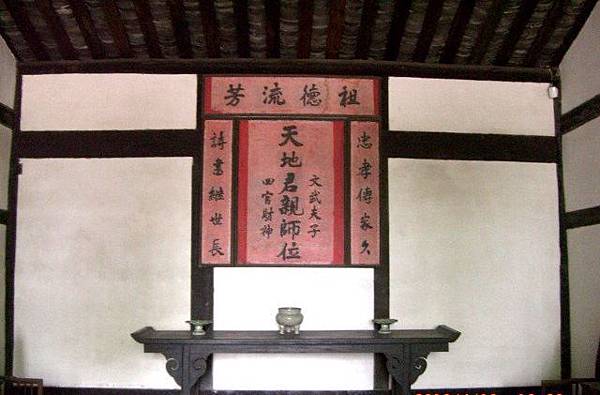 祖德流芳
忠孝傳家久
文武夫子
天地君親師位
四官財神
詩書繼世長